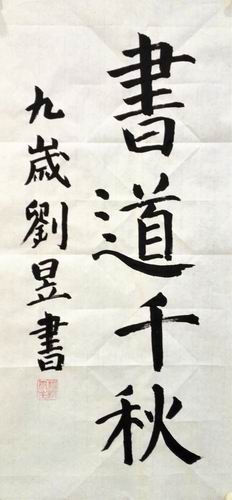 書道千秋
九歲劉昱書